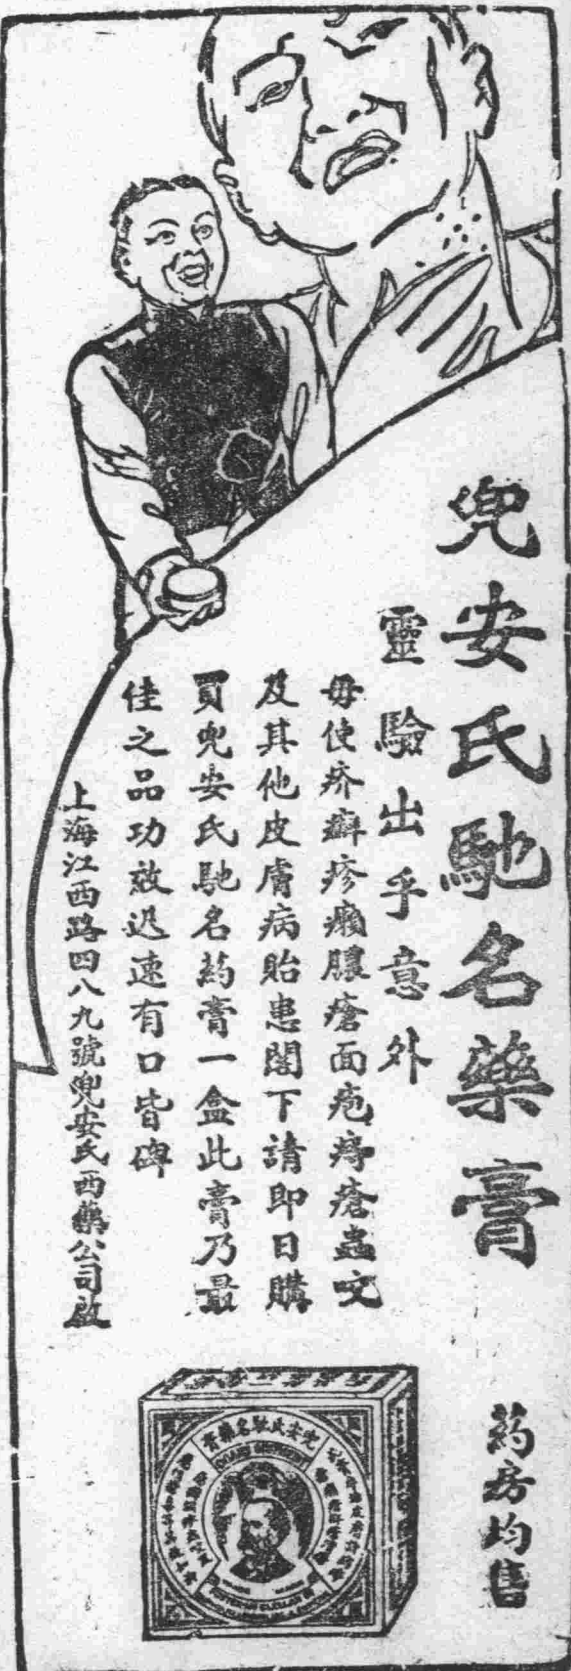 兜安氏馳名藥膏
靈驗出乎意外
毋使疥癬疹癩膿瘡面疱痔瘡蟲咬
及其他皮膚病貽患閣下請即日購
買兜安氏馳名葯膏一盒此膏乃最
佳之品功效迅速有口皆碑
上海江西路四八九號兜安氏西藥公司啟
葯房均售
兜安氏馳名藥膏